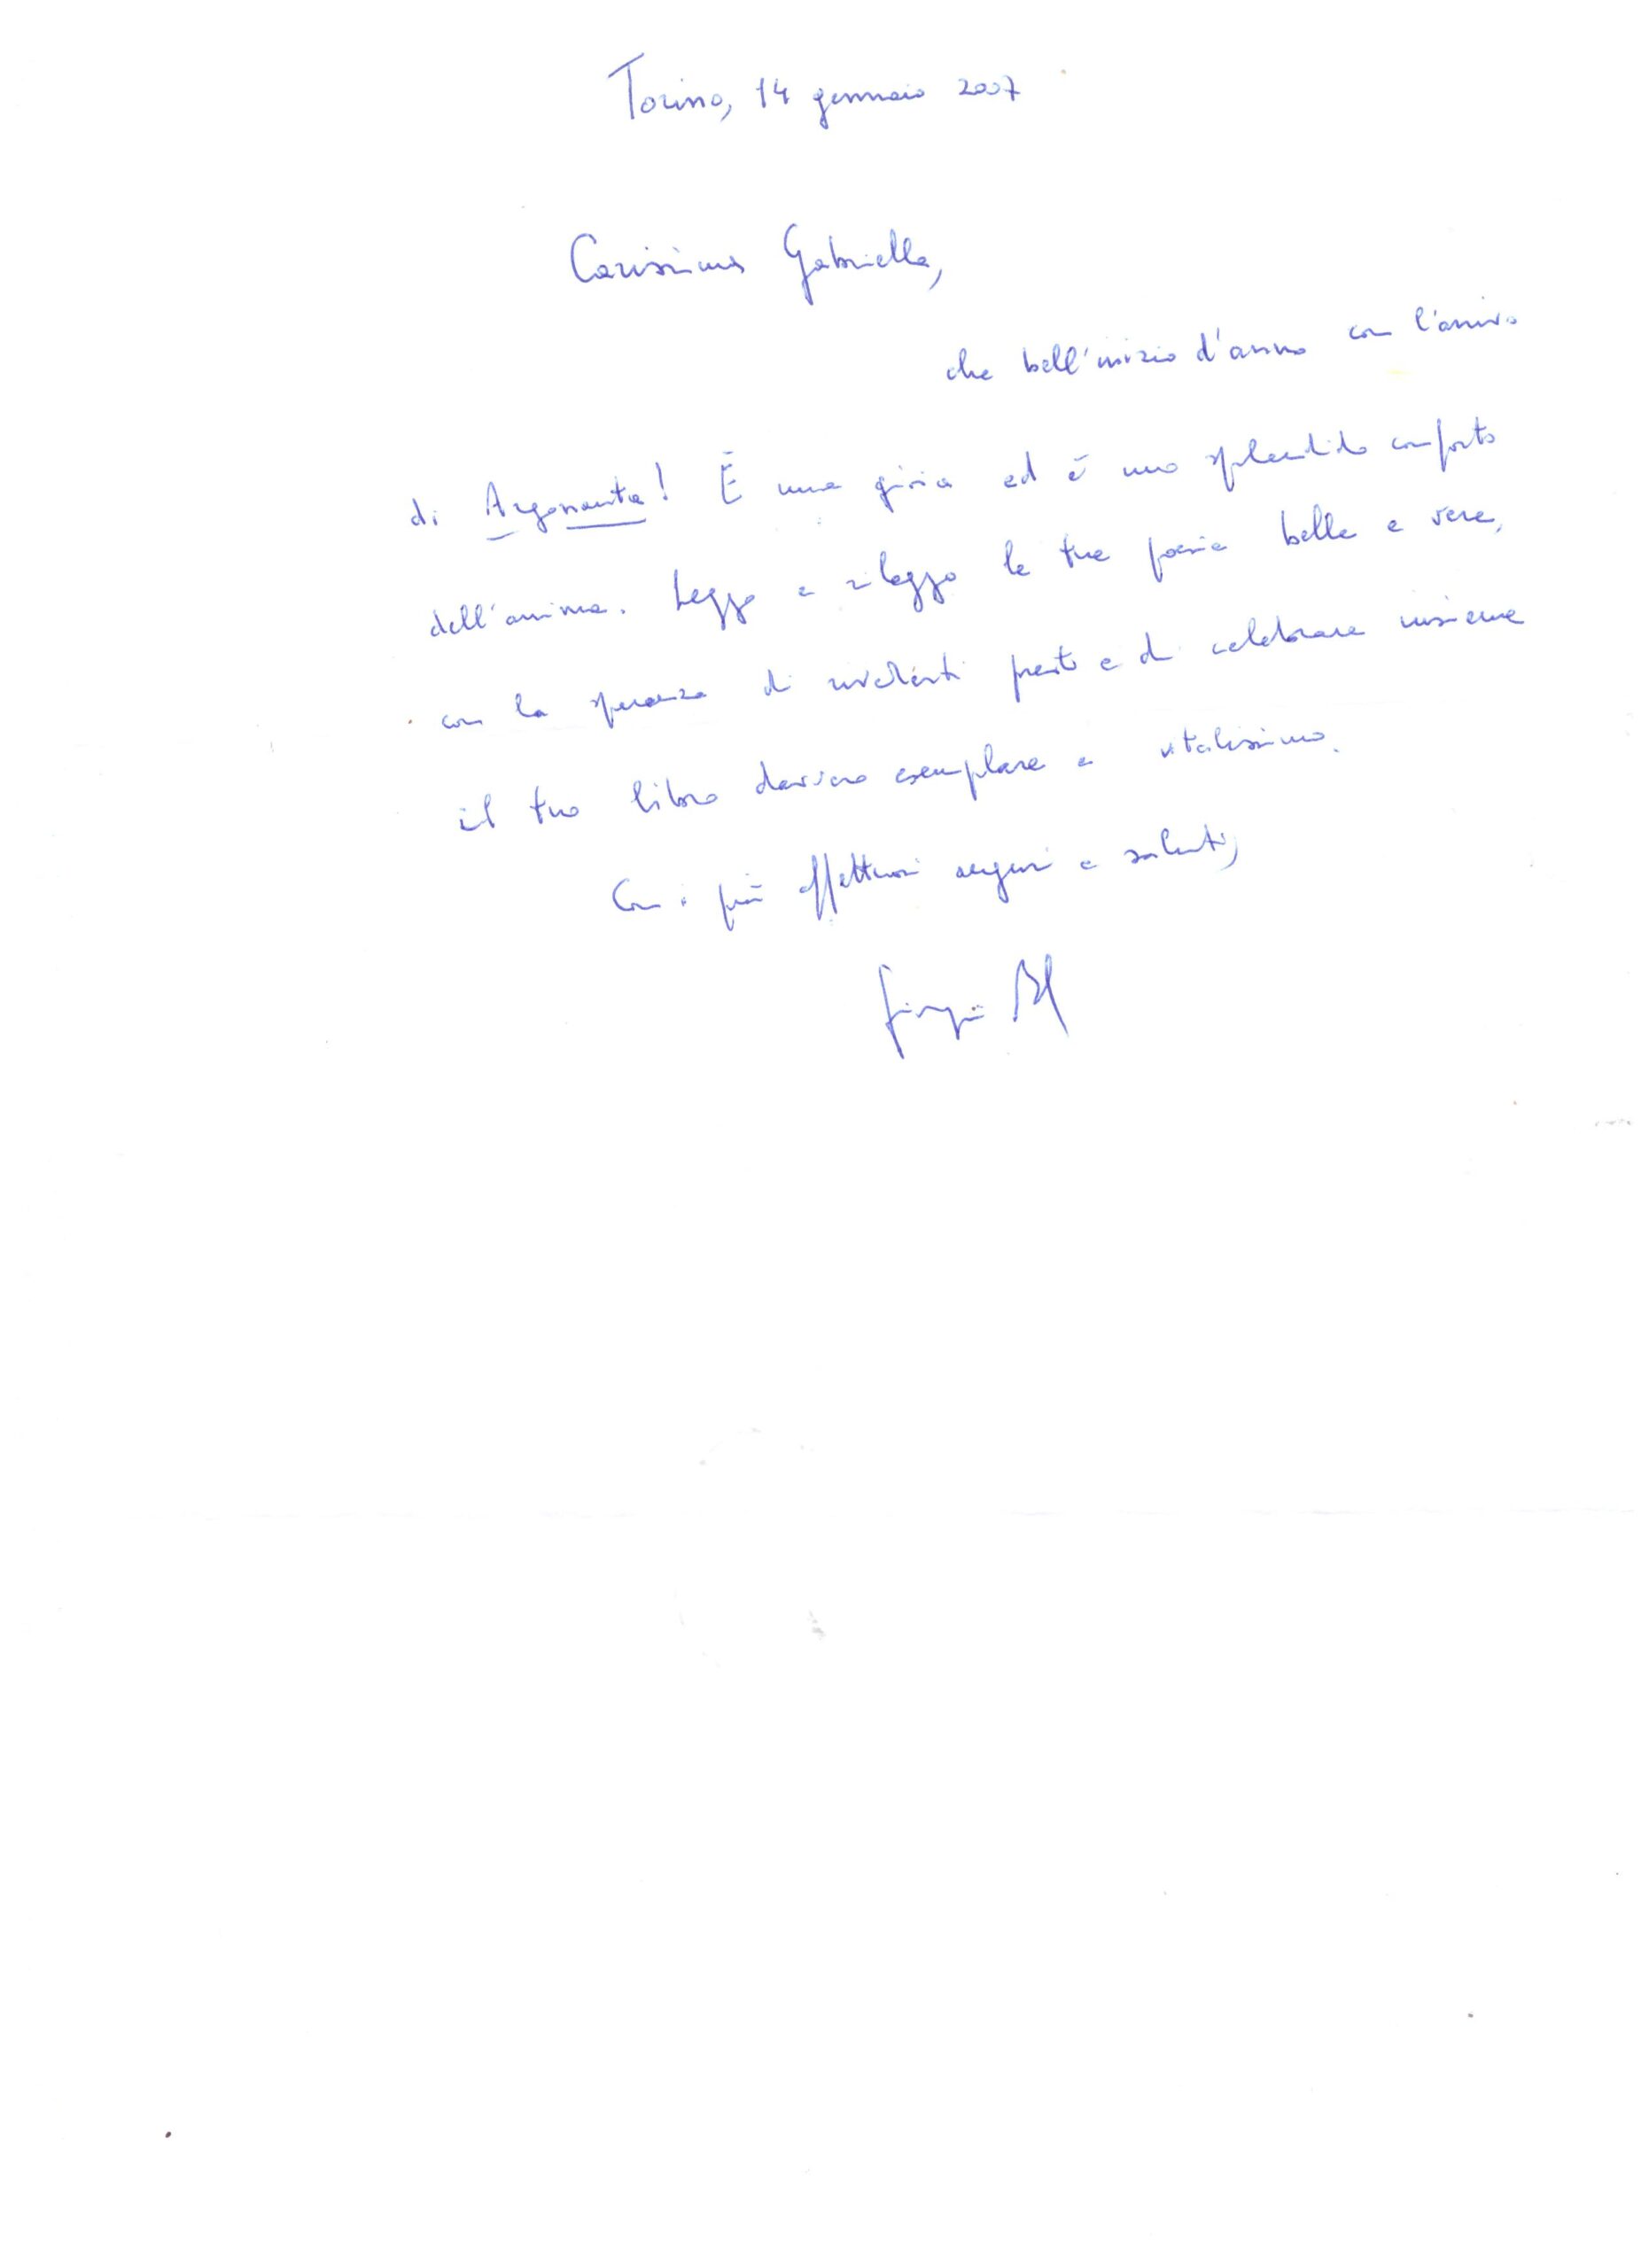 Torino, 14 gennaio 2007
Carissima Gabriella,
che bell'inizio d'anno con l'arrivo
di Argonauta! È una gioia ed è uno splendido conforto
dell'anima. Leggo e rileggo le tue poesie belle e vere,
con la speranza di rivederti presto e di celebrare insieme
il tuo libro davvero esemplare e vitalissimo.
Con i più affettuosi auguri e saluti,